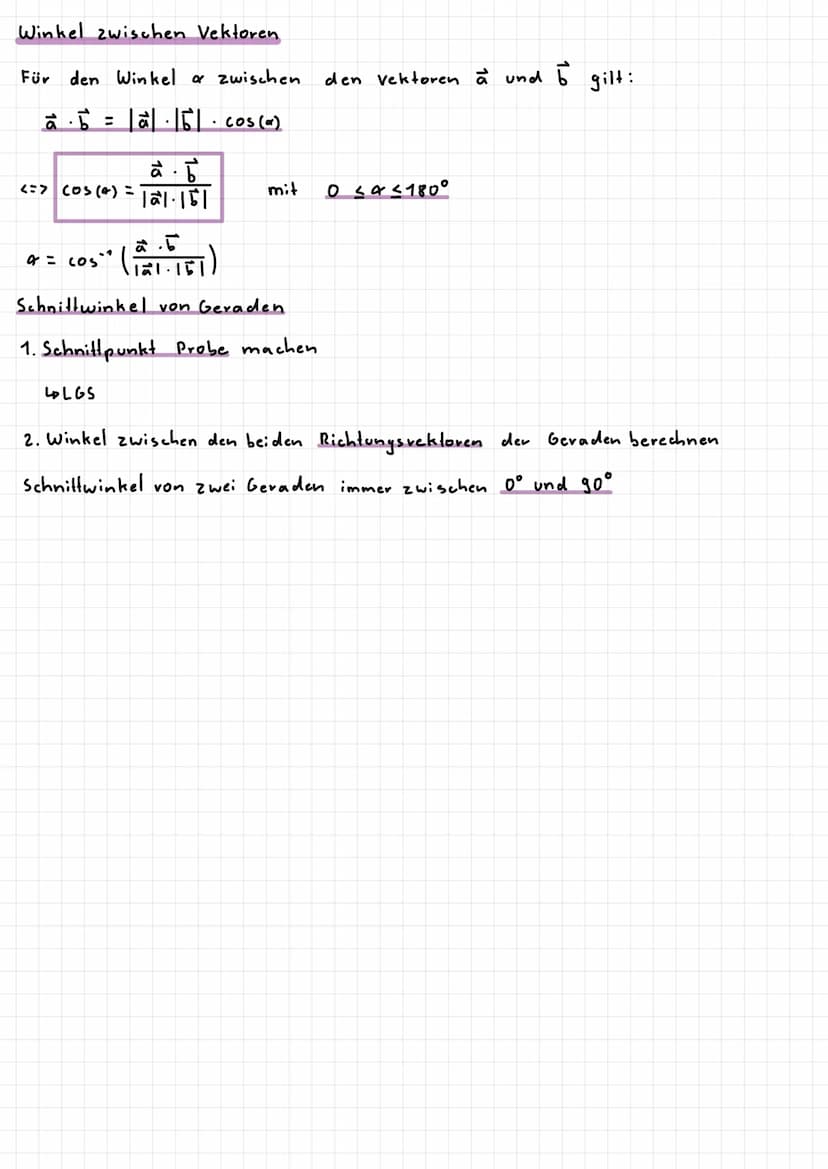 Winkel zwischen Vektoren
Für den Winkel α zwischen den Vektoren a⃗ und b⃗ gilt:
a⃗ · b⃗ = |a⃗| · |b⃗| · cos(α)
<=> cos(α) = (a⃗ · b⃗) / (|a⃗| · |b⃗|) mit 0 ≤ α ≤ 180°
α = cos⁻¹ ((a⃗ · b⃗) / (|a⃗| · |b⃗|))
Schnittwinkel von Geraden
1. Schnittpunkt Probe machen
↳ LGS
2. Winkel zwischen den beiden Richtungsvektoren der Geraden berechnen
Schnittwinkel von zwei Geraden immer zwischen 0° und 90°